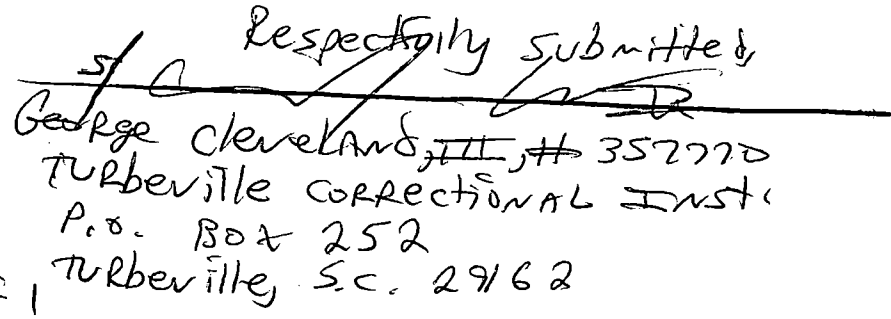 Respectfully Submitted,
S/
George Cleveland, III, # 357770
Turbeville Correctional Inst.
P.O. Box 252
Turbeville, S.C. 29162